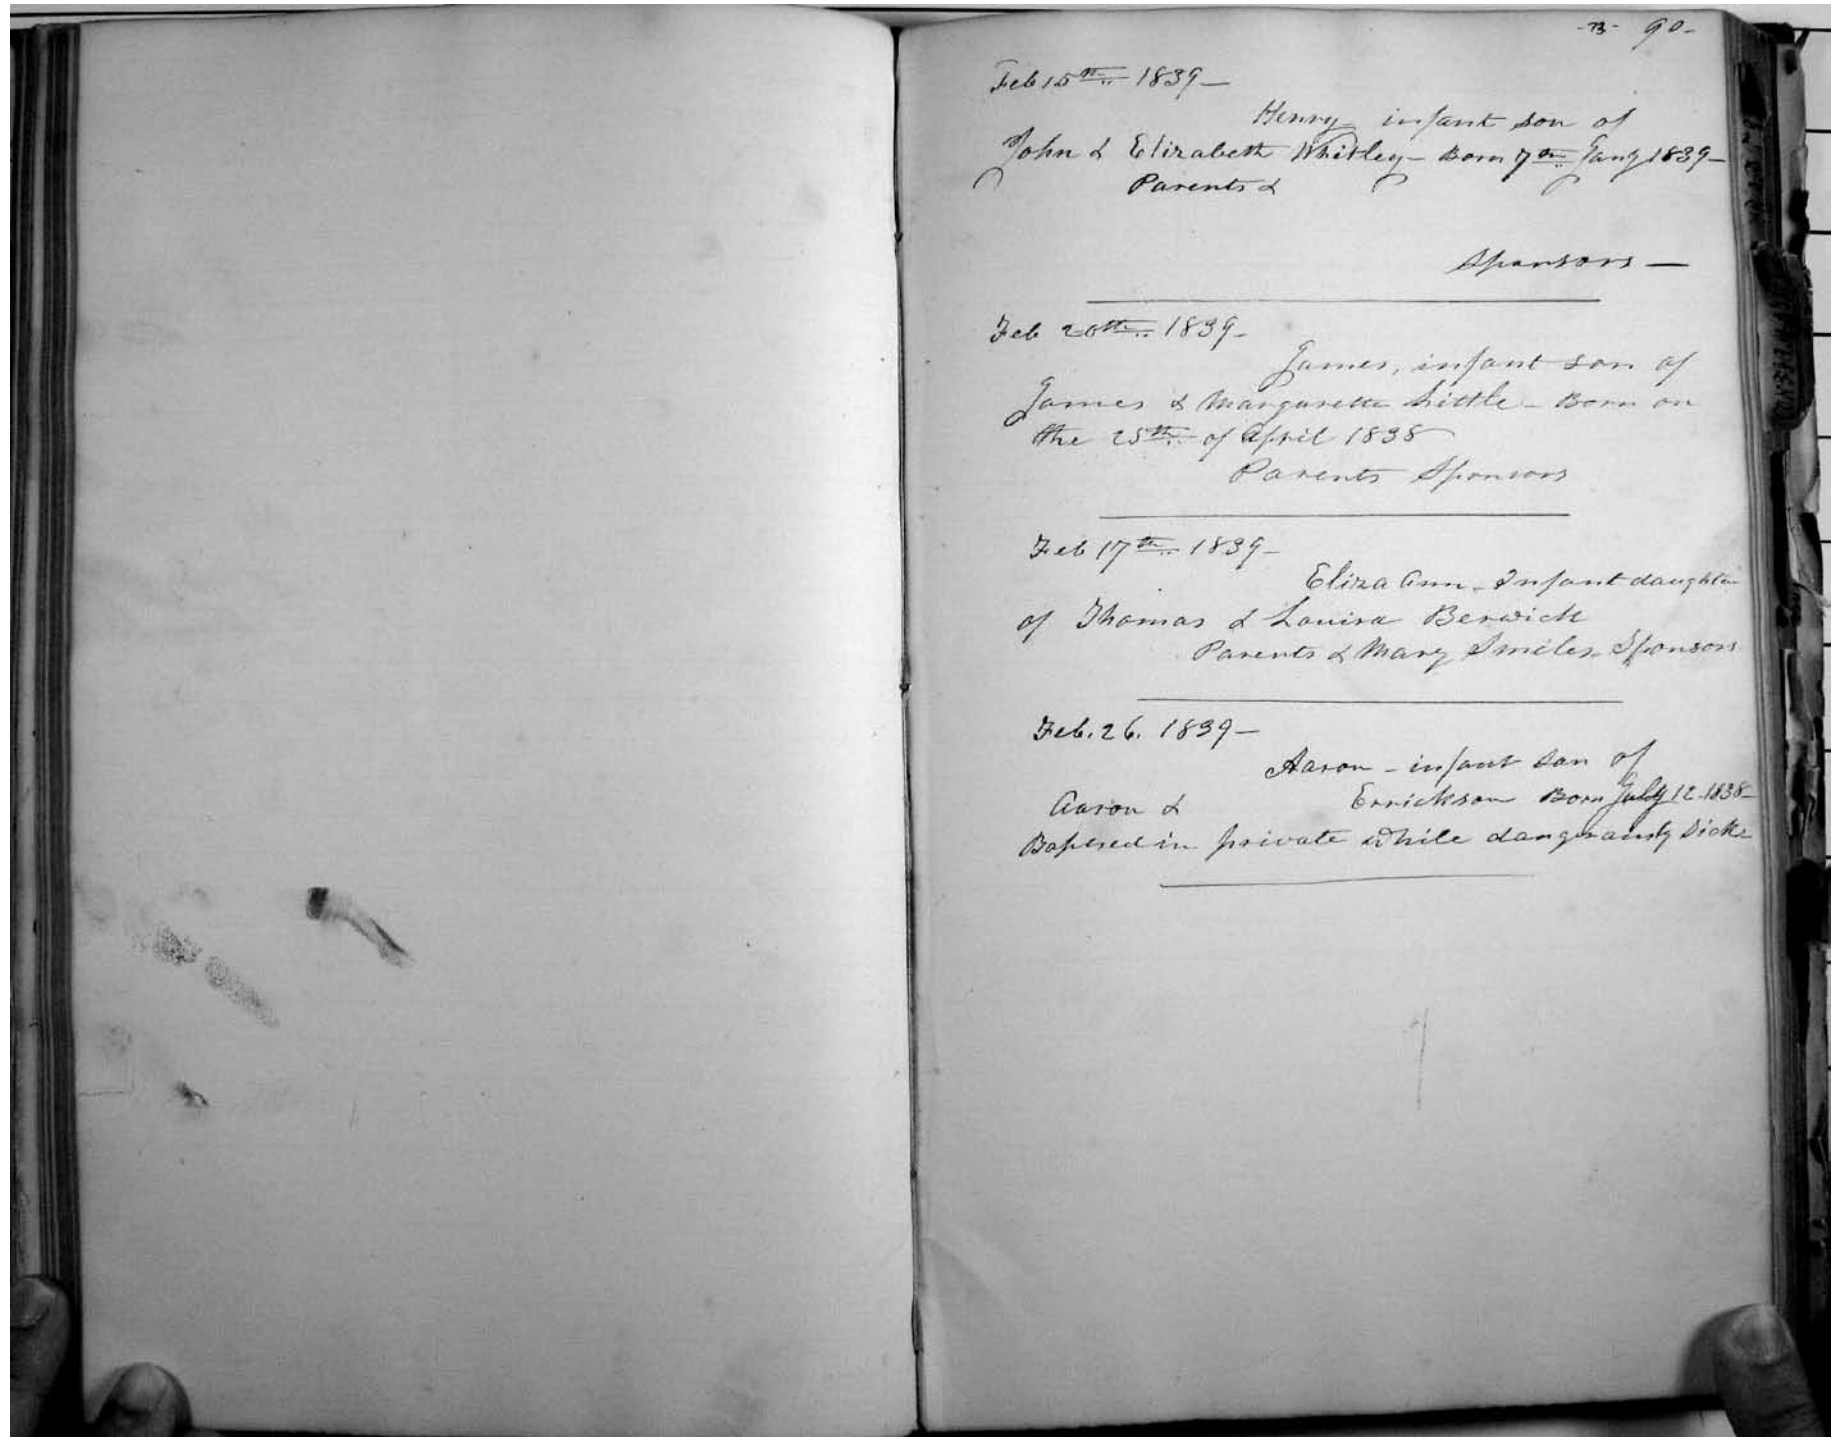 90-
Feb 15th 1839-
Henry infant son of
John & Elizabeth Whitley - Born 7th Jany 1839-
Parents &
Sponsors -
Feb 20th 1839-
James, infant son of
James & Margarette Little - Born on
the 25th of April 1838
Parents Sponsors
Feb 17th 1839-
Eliza Ann - Infant daughter
of Thomas & Louisa Berwick
Parents & Mary Smiles Sponsors
Feb. 26. 1839-
Aaron - infant son of
Aaron & Errickson Born July 12 1838-
in private while dangerously Sick